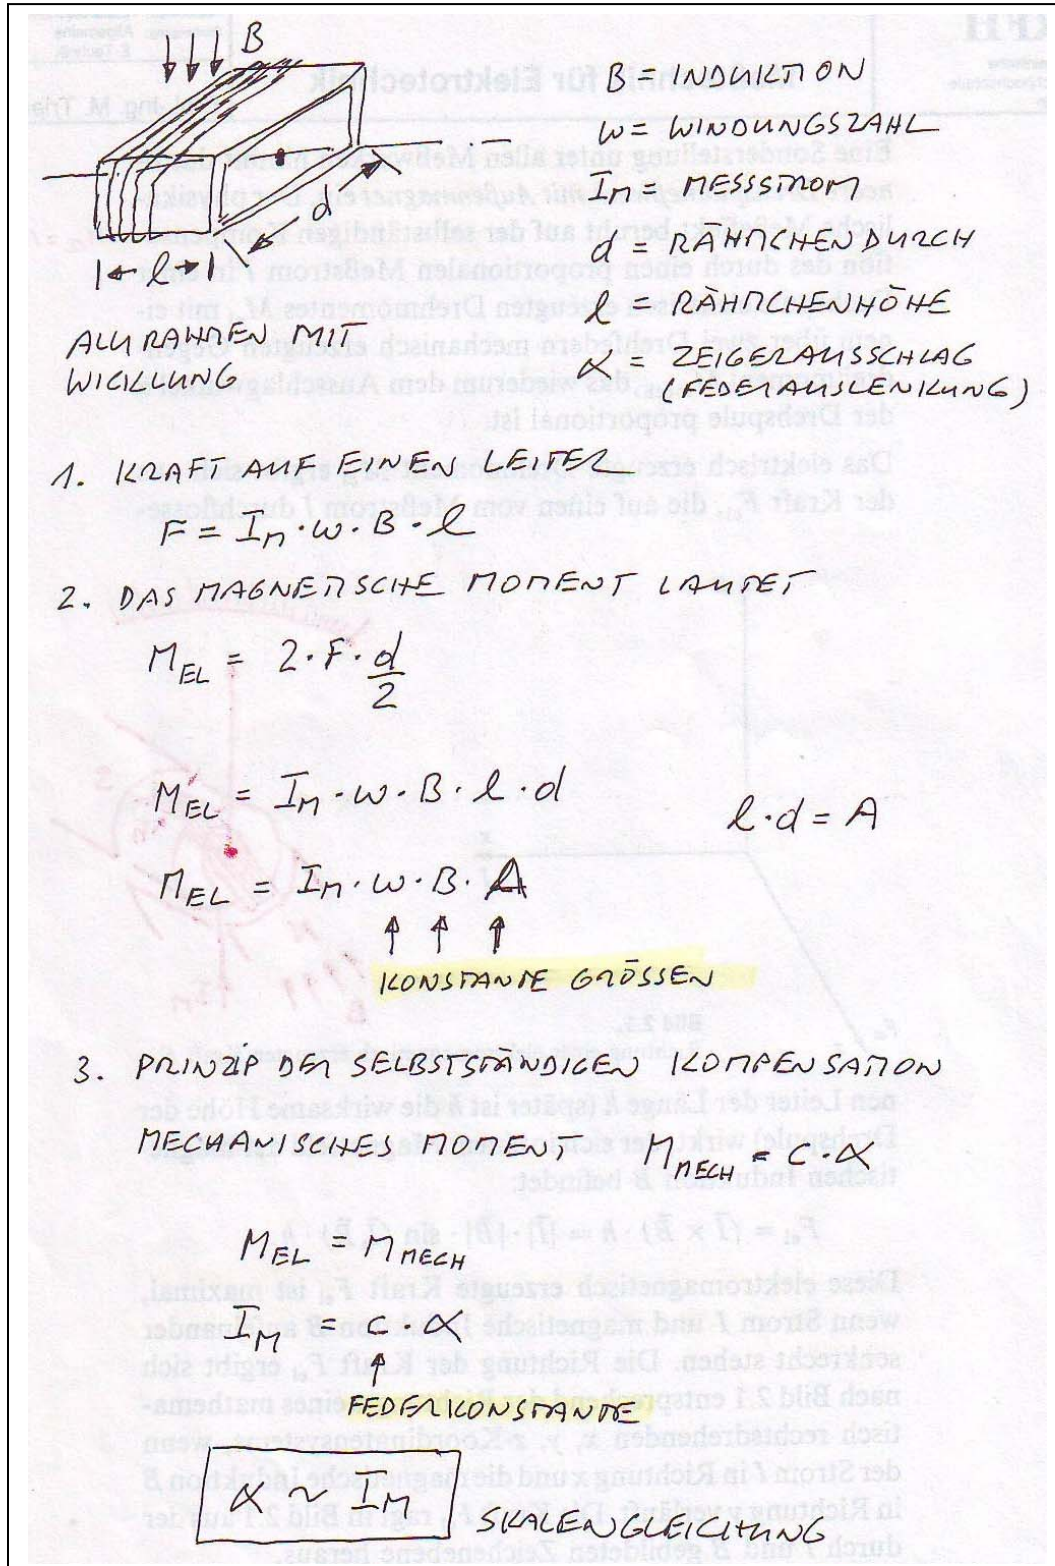 B
B = INDUKTION
w = WINDUNGSZAHL
I_M = MESSSTROM
d
d = RÄHMCHENDURCH
l
l = RÄHMCHENHÖHE
ALURAHMEN MIT
WICKLUNG
α = ZEIGERAUSSCHLAG
(FEDERAUSLENKUNG)
1. KRAFT AUF EINEN LEITER
F = I_M · w · B · l
2. DAS MAGNETISCHE MOMENT LAUTET
M_EL = 2 · F · d/2
M_EL = I_M · w · B · l · d
l · d = A
M_EL = I_M · w · B · A
KONSTANTE GRÖSSEN
3. PRINZIP DER SELBSTSTÄNDIGEN KOMPENSATION
MECHANISCHES MOMENT M_MECH = C · α
M_EL = M_MECH
I_M = C · α
FEDERKONSTANTE
α ~ I_M
SKALENGLEICHUNG